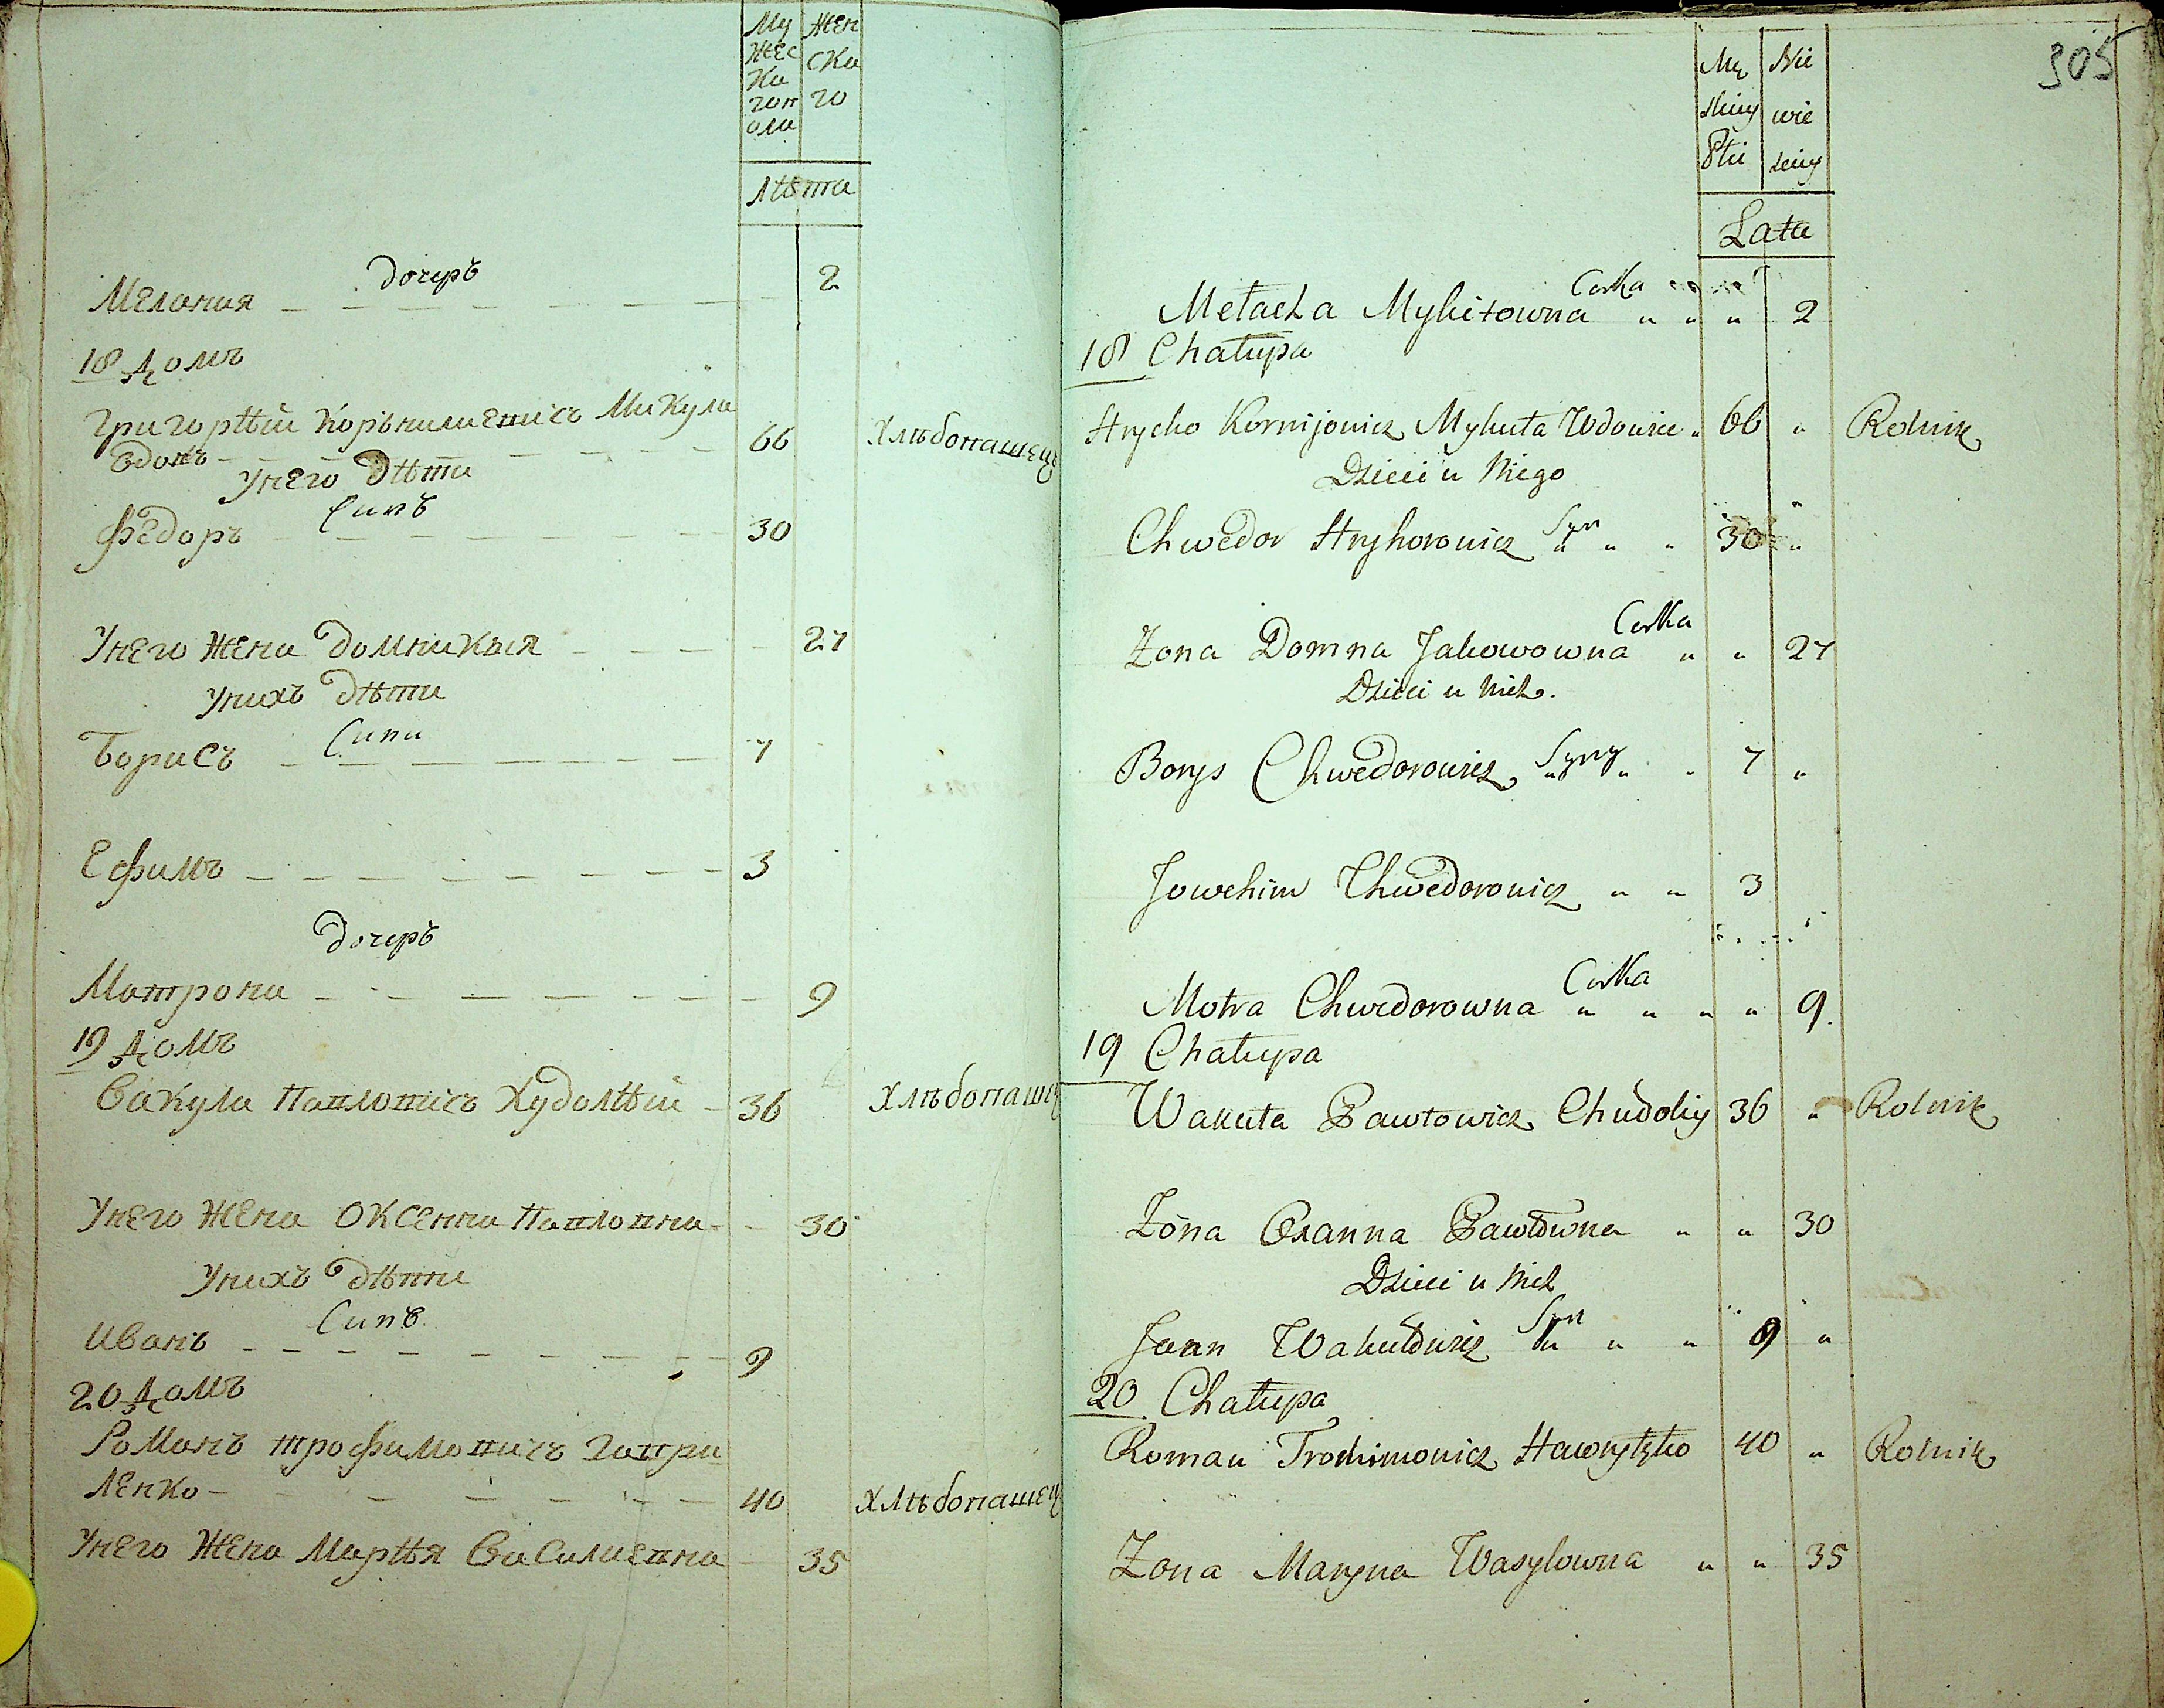 Му
жес
ка
гоп
ола
жен
ска
го
лѣта
дочеръ
Мелания 2
18 домъ
Григорѣй Корънилиевичъ Микула
вдовъ 66 Хлѣбопашецъ
Унего дѣти
Синъ
Федоръ 30
Унего жена домникия 27
Унихъ дѣти
Сини
Борисъ 7
Ефимъ 3
дочеръ
Матрона 9
19 домъ
Вакула Павловичъ Худолѣй 36 Хлѣбопашец
Унего жена Оксенна Павловна 30
Унихъ дѣти
Синъ
Иванъ 9
20 домъ
Романъ Трофимовичъ Гаври
ленко 40 хлѣбопашец
Унего жена Марѣя Василиевна 35
305
Mę
skiey
Płci
Nie
wie
sciey
Lata
Corka
Mełacha Mykitowna " " " 2
18 Chałupa
Hrycko Kornijowicz Mykuła Wdowiec " 66 " Rolnik
Dzieci u Niego
Syn
Chwedor Hryhorowicz " " " 30 "
Corka
Żona Domna Jakowowna " " 27
Dzieci u Nich.
Borys Chwedorowicz Syny " " 7 "
Jowchim Chwedorowicz " " 3
Corka
Motra Chwedorowna " " " " 9.
19 Chałupa
Wakuła Pawłowicz Chudoliy 36 " Rolnik
Żona Oxanna Pawłowna " " 30
Dzieci u Nich
Syn
Jwan Wakułowicz " " " 9 "
20 Chałupa
Roman Trochimowicz Hawryłko 40 " Rolnik
Żona Maryna Wasylowna " " 35